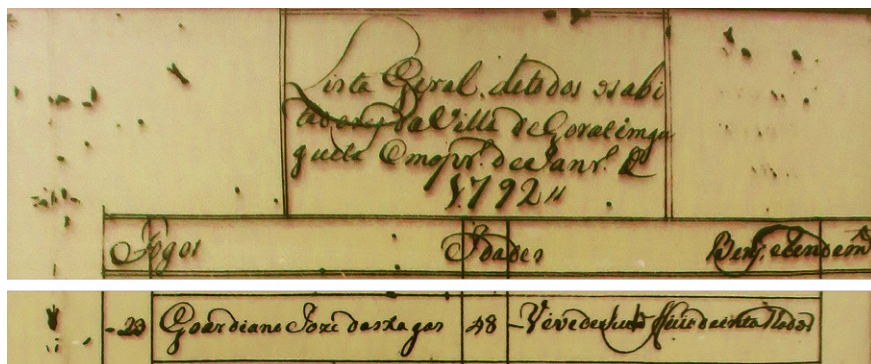 Lista Geral, detodos osabi
tadores da Villa de Goratimga
queta Emopr.º de Janr.º D
1792,,
Fogos Idades Bens, eRendim
23 Goardiano Joze das xagas 48 Vive de seu